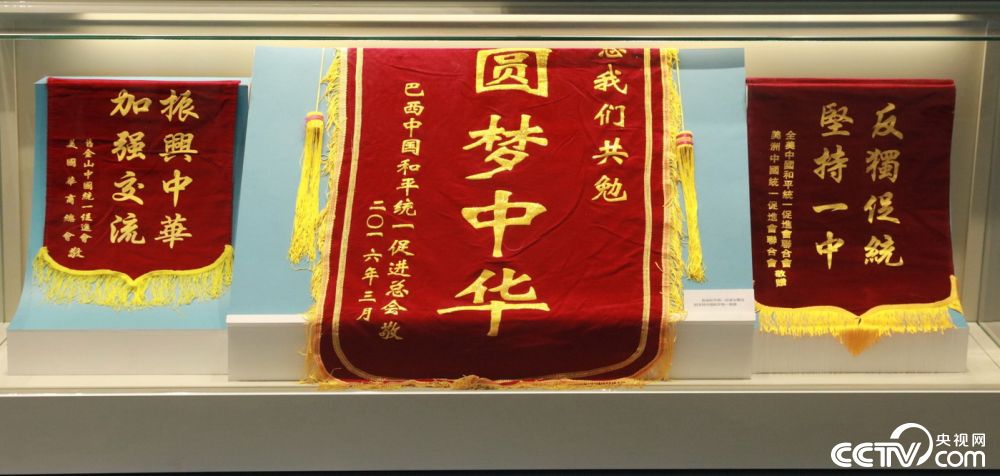 振興中華
加强交流
舊金山中國統一促進會
美國華商總會 敬
我们共勉
圆梦中华
巴西中国和平统一促进总会 敬
二〇一六年三月
反獨促統
堅持一中
全美中國和平統一促進會聯合會 敬贈
美洲中國統一促進會聯合會
CCTV 央视网
com